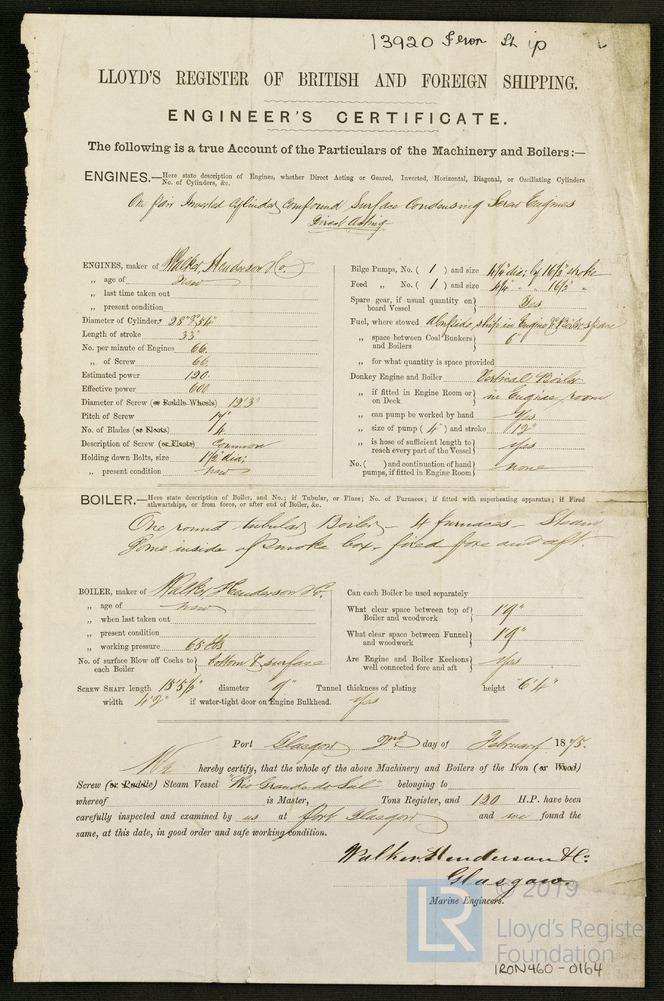 13920 Iron Ship
LLOYD'S REGISTER OF BRITISH AND FOREIGN SHIPPING.
ENGINEER'S CERTIFICATE.
The following is a true Account of the Particulars of the Machinery and Boilers:—
ENGINES.—Here state description of Engines, whether Direct Acting or Geared, Inverted, Horizontal, Diagonal, or Oscillating Cylinders
No. of Cylinders, &c.
One pair Inverted Cylinder, Compound Surface Condensing Screw Engines
Direct Acting
ENGINES, maker of Walker, Henderson & Co.
„ age of New
„ last time taken out
„ present condition
Diameter of Cylinders 28" &
Length of stroke 33"
No. per minute of Engines 66.
„ of Screw 66.
Estimated power 120.
Effective power 600
Diameter of Screw (or Paddle Wheels) 12'3"
Pitch of Screw 17'
No. of Blades (or Floats) 4.
Description of Screw (or Floats) Common
Holding down Bolts, size 1½" dia;
„ present condition new
Bilge Pumps, No. ( 1 ) and size 4½" dia; by 16½" stroke
Feed „ No. ( 1 ) and size 4½" „ „ 16½" „
Spare gear, if usual quantity on board Vessel } Yes
Fuel, where stowed alongside, ship in Engine & Boiler space
„ space between Coal Bunkers and Boilers } 6"
„ for what quantity is space provided
Donkey Engine and Boiler Vertical Boiler
„ if fitted in Engine Room or on Deck } in Engine room
„ can pump be worked by hand Yes
„ size of pump ( 4" ) and stroke 12"
„ is hose of sufficient length to reach every part of the Vessel } yes
No. ( ) and continuation of hand pumps, if fitted in Engine Room } none
BOILER.—Here state description of Boiler, and No.; if Tubular, or Flues; No. of Furnaces; if fitted with superheating apparatus; if Fired
athwartships, or from force, or after end of Boiler, &c.
One round tubular Boiler – 4 furnaces – Steam
Dome inside of smoke box, fired fore and aft.
BOILER, maker of Walker, Henderson & Co.
„ age of new
„ when last taken out
„ present condition
„ working pressure 65 lbs
No. of surface Blow off Cocks to each Boiler } bottom & surface
Can each Boiler be used separately
What clear space between top of Boiler and woodwork } 1'9"
What clear space between Funnel and woodwork } 1'9"
Are Engine and Boiler Keelsons well connected fore and aft } yes
SCREW SHAFT length 15'5½" diameter 9" Tunnel thickness of plating height 6'4"
width 4'2" if water-tight door on Engine Bulkhead. yes
Port Glasgow 2nd day of February 1875.
We hereby certify, that the whole of the above Machinery and Boilers of the Iron (or Wood)
Screw (or Paddle) Steam Vessel "Rio Grande do Sul" belonging to
whereof is Master, Tons Register, and 120 H.P. have been
carefully inspected and examined by us at Port Glasgow and we found the
same, at this date, in good order and safe working condition.
Walker, Henderson & Co.
Glasgow.
Marine Engineers.
© 2019
LR
Lloyd's Register
Foundation
IRON460-0164